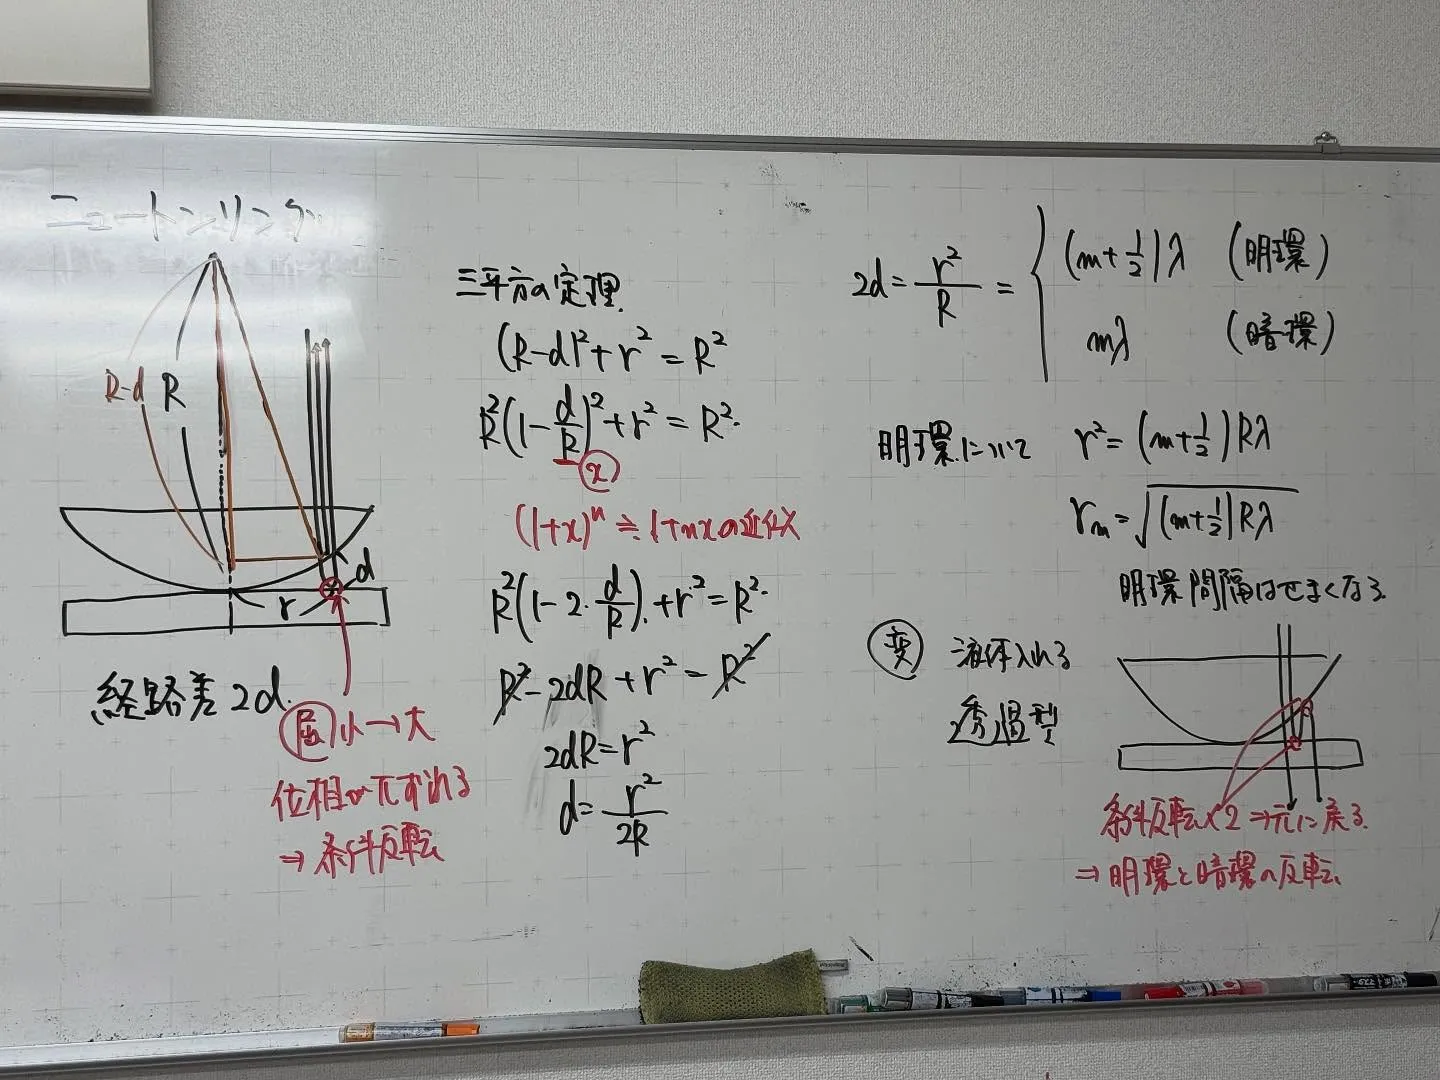 ニュートンリング
R-d
R
d
r
経路差2d
屈 小→大
位相がπずれる
⇒条件反転
三平方の定理
(R-d)²+r²=R²
R²(1-d/R)²+r²=R²
x
(1+x)ⁿ≒1+nxの近似
R²(1-2·d/R)+r²=R²
R²-2dR+r²=R²
2dR=r²
d=r²/2R
2d=r²/R=
(m+1/2)λ (明環)
mλ (暗環)
明環について r²=(m+1/2)Rλ
rm=√(m+1/2)Rλ
明環間隔はせまくなる
変 液体入れる
透過型
条件反転×2→元に戻る
⇒明環と暗環の反転